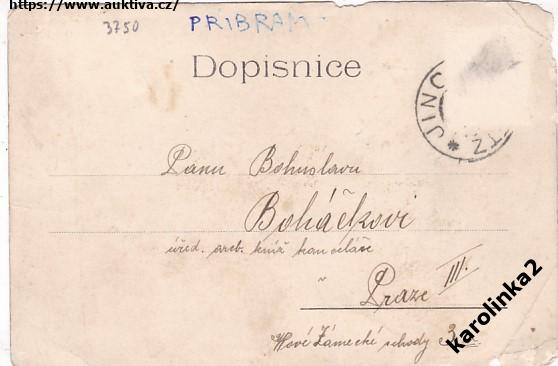 https://www.auktiva.cz/
3750 PŘIBRAM
Dopisnice
JINC
TZ
Panu Bohuslavu
Boháčkovi
úřed. arcb. kníž kanceláře
v Praze III.
Nové Zámecké schody 3
karolinka2